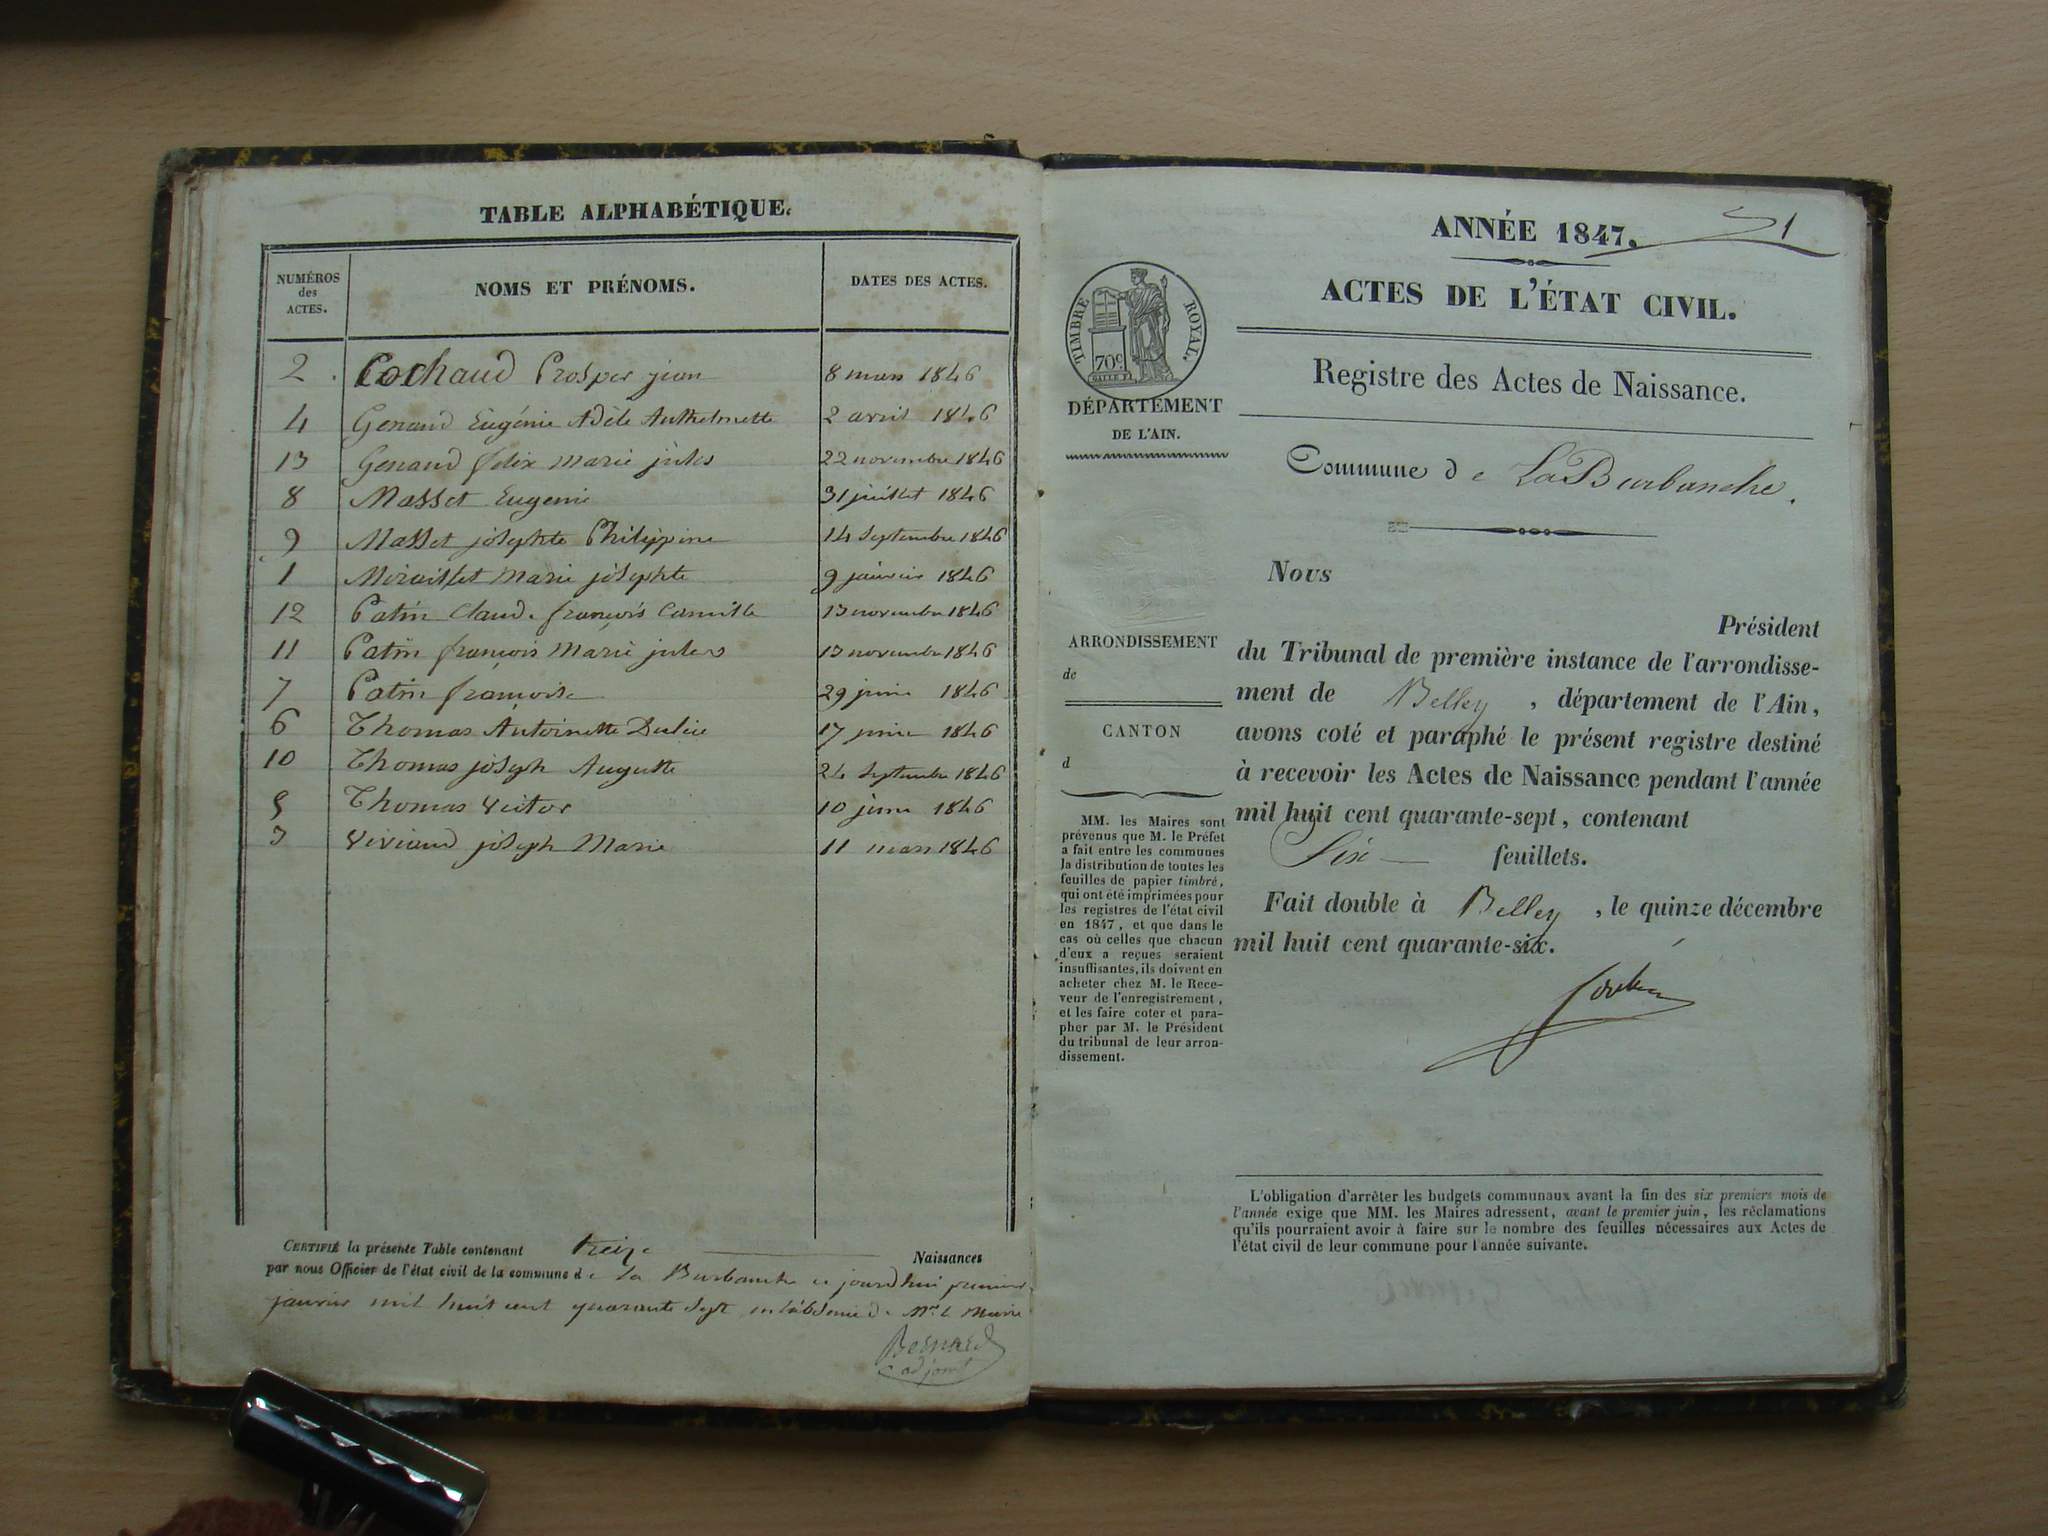 TABLE ALPHABÉTIQUE.
NUMÉROS des ACTES. NOMS ET PRÉNOMS. DATES DES ACTES.
2 Cochaud Prosper jean 8 mars 1846
4 Genaud Eugénie Adèle Anthelmette 2 avril 1846
13 Genaud felix marie jules 22 novembre 1846
8 Masset Eugenie 31 juillet 1846
9 Masset josephte Philippine 14 Septembre 1846
1 marie josephte 9 janvier 1846
12 Patin Claude françois Camille 13 novembre 1846
11 Patin françois Marie jules 13 novembre 1846
7 Patin françoise 29 juin 1846
6 Thomas Antoinette 17 juin 1846
10 Thomas joseph Auguste 24 Septembre 1846
5 Thomas Victor 10 juin 1846
3 Viviand joseph Marie 11 mars 1846
CERTIFIÉ la présente Table contenant treize Naissances
par nous Officier de l'état civil de la commune de la Burbanche ce jourd'hui premier
janvier mil huit cent quarante sept en l'absence de Mr le Maire
Bernard
adjoint
ANNÉE 1847. 1
ACTES DE L'ÉTAT CIVIL.
Registre des Actes de Naissance.
TIMBRE ROYAL.
70c
DÉPARTEMENT
DE L'AIN.
Commune de La Burbanche.
ARRONDISSEMENT
de
CANTON
d
MM. les Maires sont
prévenus que M. le Préfet
a fait entre les communes
la distribution de toutes les
feuilles de papier timbré,
qui ont été imprimées pour
les registres de l'état civil
en 1847, et que dans le
cas où celles que chacun
d'eux a reçues seraient
insuffisantes, ils doivent en
acheter chez M. le Rece-
veur de l'enregistrement,
et les faire coter et para-
pher par M. le Président
du tribunal de leur arron-
dissement.
Nous
Président
du Tribunal de première instance de l'arrondisse-
ment de Belley, département de l'Ain,
avons coté et paraphé le présent registre destiné
à recevoir les Actes de Naissance pendant l'année
mil huit cent quarante-sept, contenant
Six feuillets.
Fait double à Belley, le quinze décembre
mil huit cent quarante-six.
L'obligation d'arrêter les budgets communaux avant la fin des six premiers mois de
l'année exige que MM. les Maires adressent, avant le premier juin, les réclamations
qu'ils pourraient avoir à faire sur le nombre des feuilles nécessaires aux Actes de
l'état civil de leur commune pour l'année suivante.